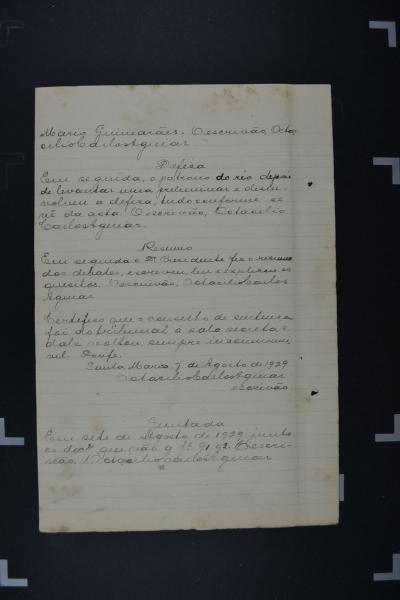 Mario Guimarães. O escrivão, Octa
cilio Carlos Aguiar
Defesa
Em seguida, o patrono do réo depois
de levantar uma preliminar e desen-
volveu a defesa, tudo conforme se
vê da acta. O escrivão, Octacilio
Carlos Aguiar.
Resumo
Em seguida o Dr Presidente fez o resumo
dos debates, escreveu, leu e explicou os
quesitos. O escrivão, Octacilio Carlos
Aguiar
Certifico que o conselho de sentença
foi do tribunal á sala secreta e
dali voltou, sempre
vel. Dou fé.
Santa Maria, 7 de Agosto de 1929
Octacilio Carlos Aguiar
escrivão
Juntada
Em sete de Agosto de 1929 junto
os doctos que vão a fs. 91, 92. O escri-
vão, Octacilio Carlos Aguiar